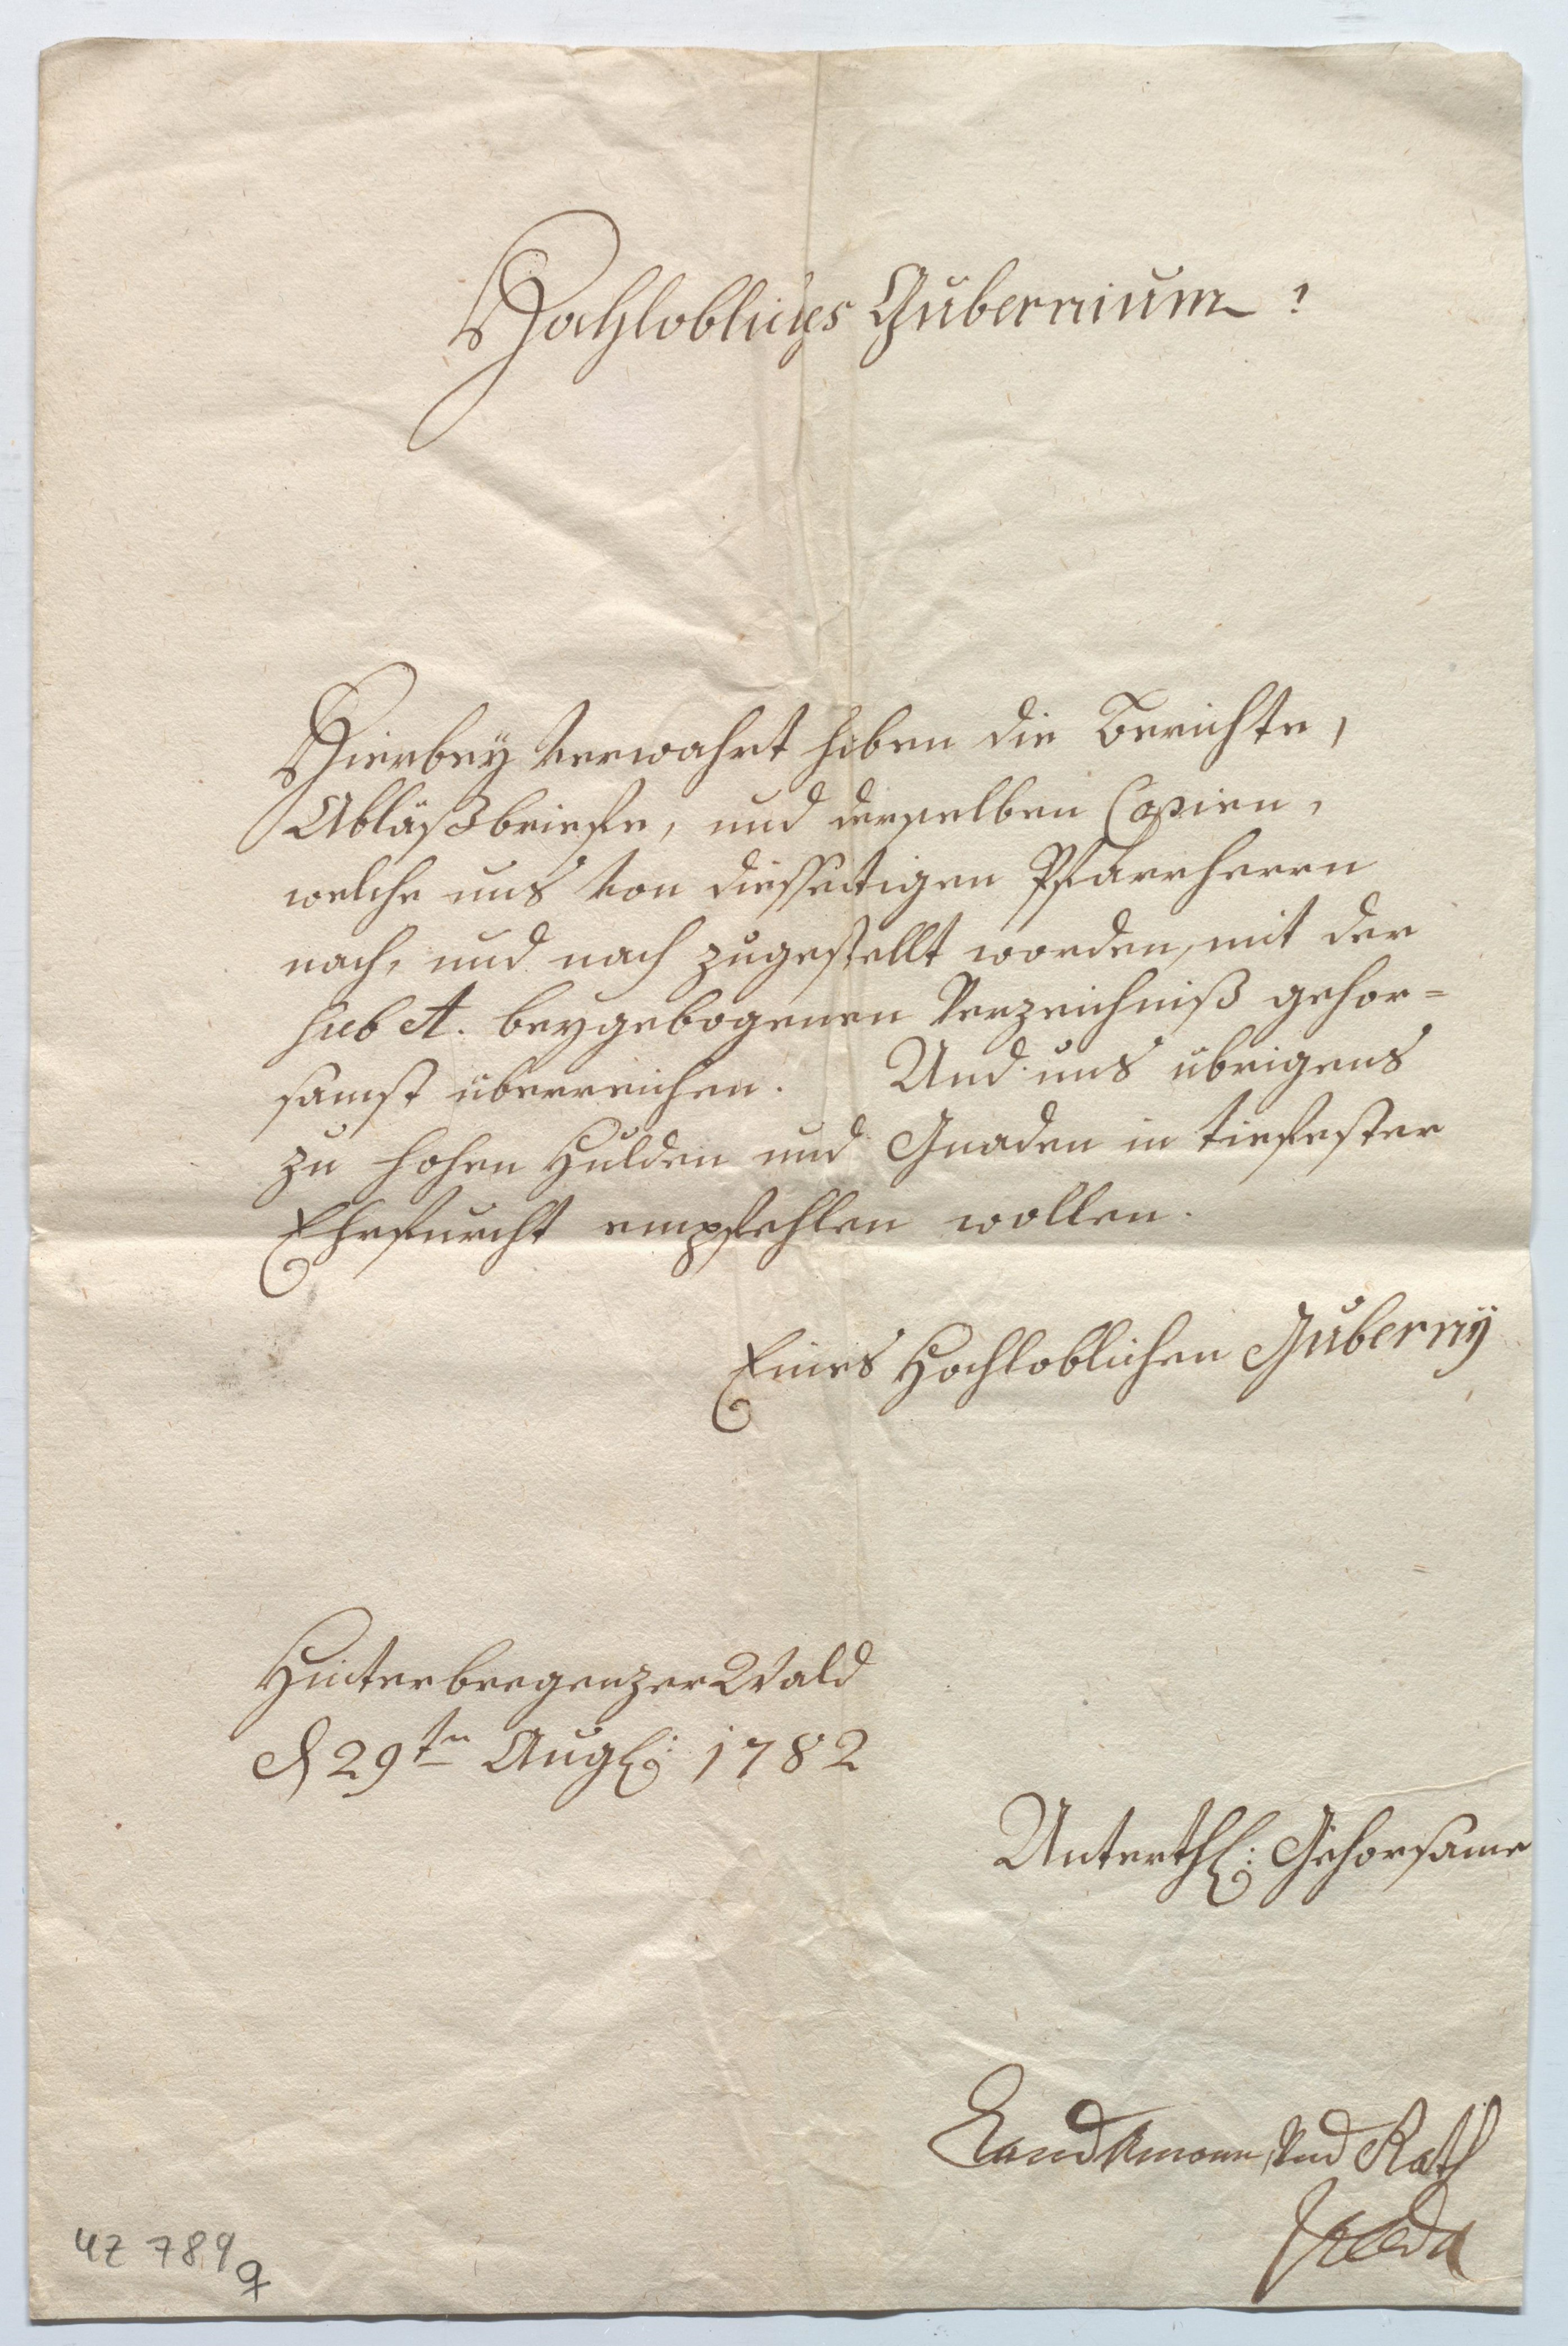 Hochlobliches Gubernium!
Hierbey verwahrt haben die Berichte,
Abläßbriefe, und derselben Copien,
welche uns von diesseitigen Pfarrherrn
nach, und nach zugestellt worden, mit der
sub A. beygebogenen Verzeichniß gehor=
samst überreichen. Und uns übrigens
zu hohen Hulden und Gnaden in tiefester
Ehrfurcht empfehlen wollen.
Eines Hochloblichen Guberny
HinterbregenzerWald
d 29tn Aug: 1782
Unterth: Gehorsame
Landtamann Und Rath
UZ 789